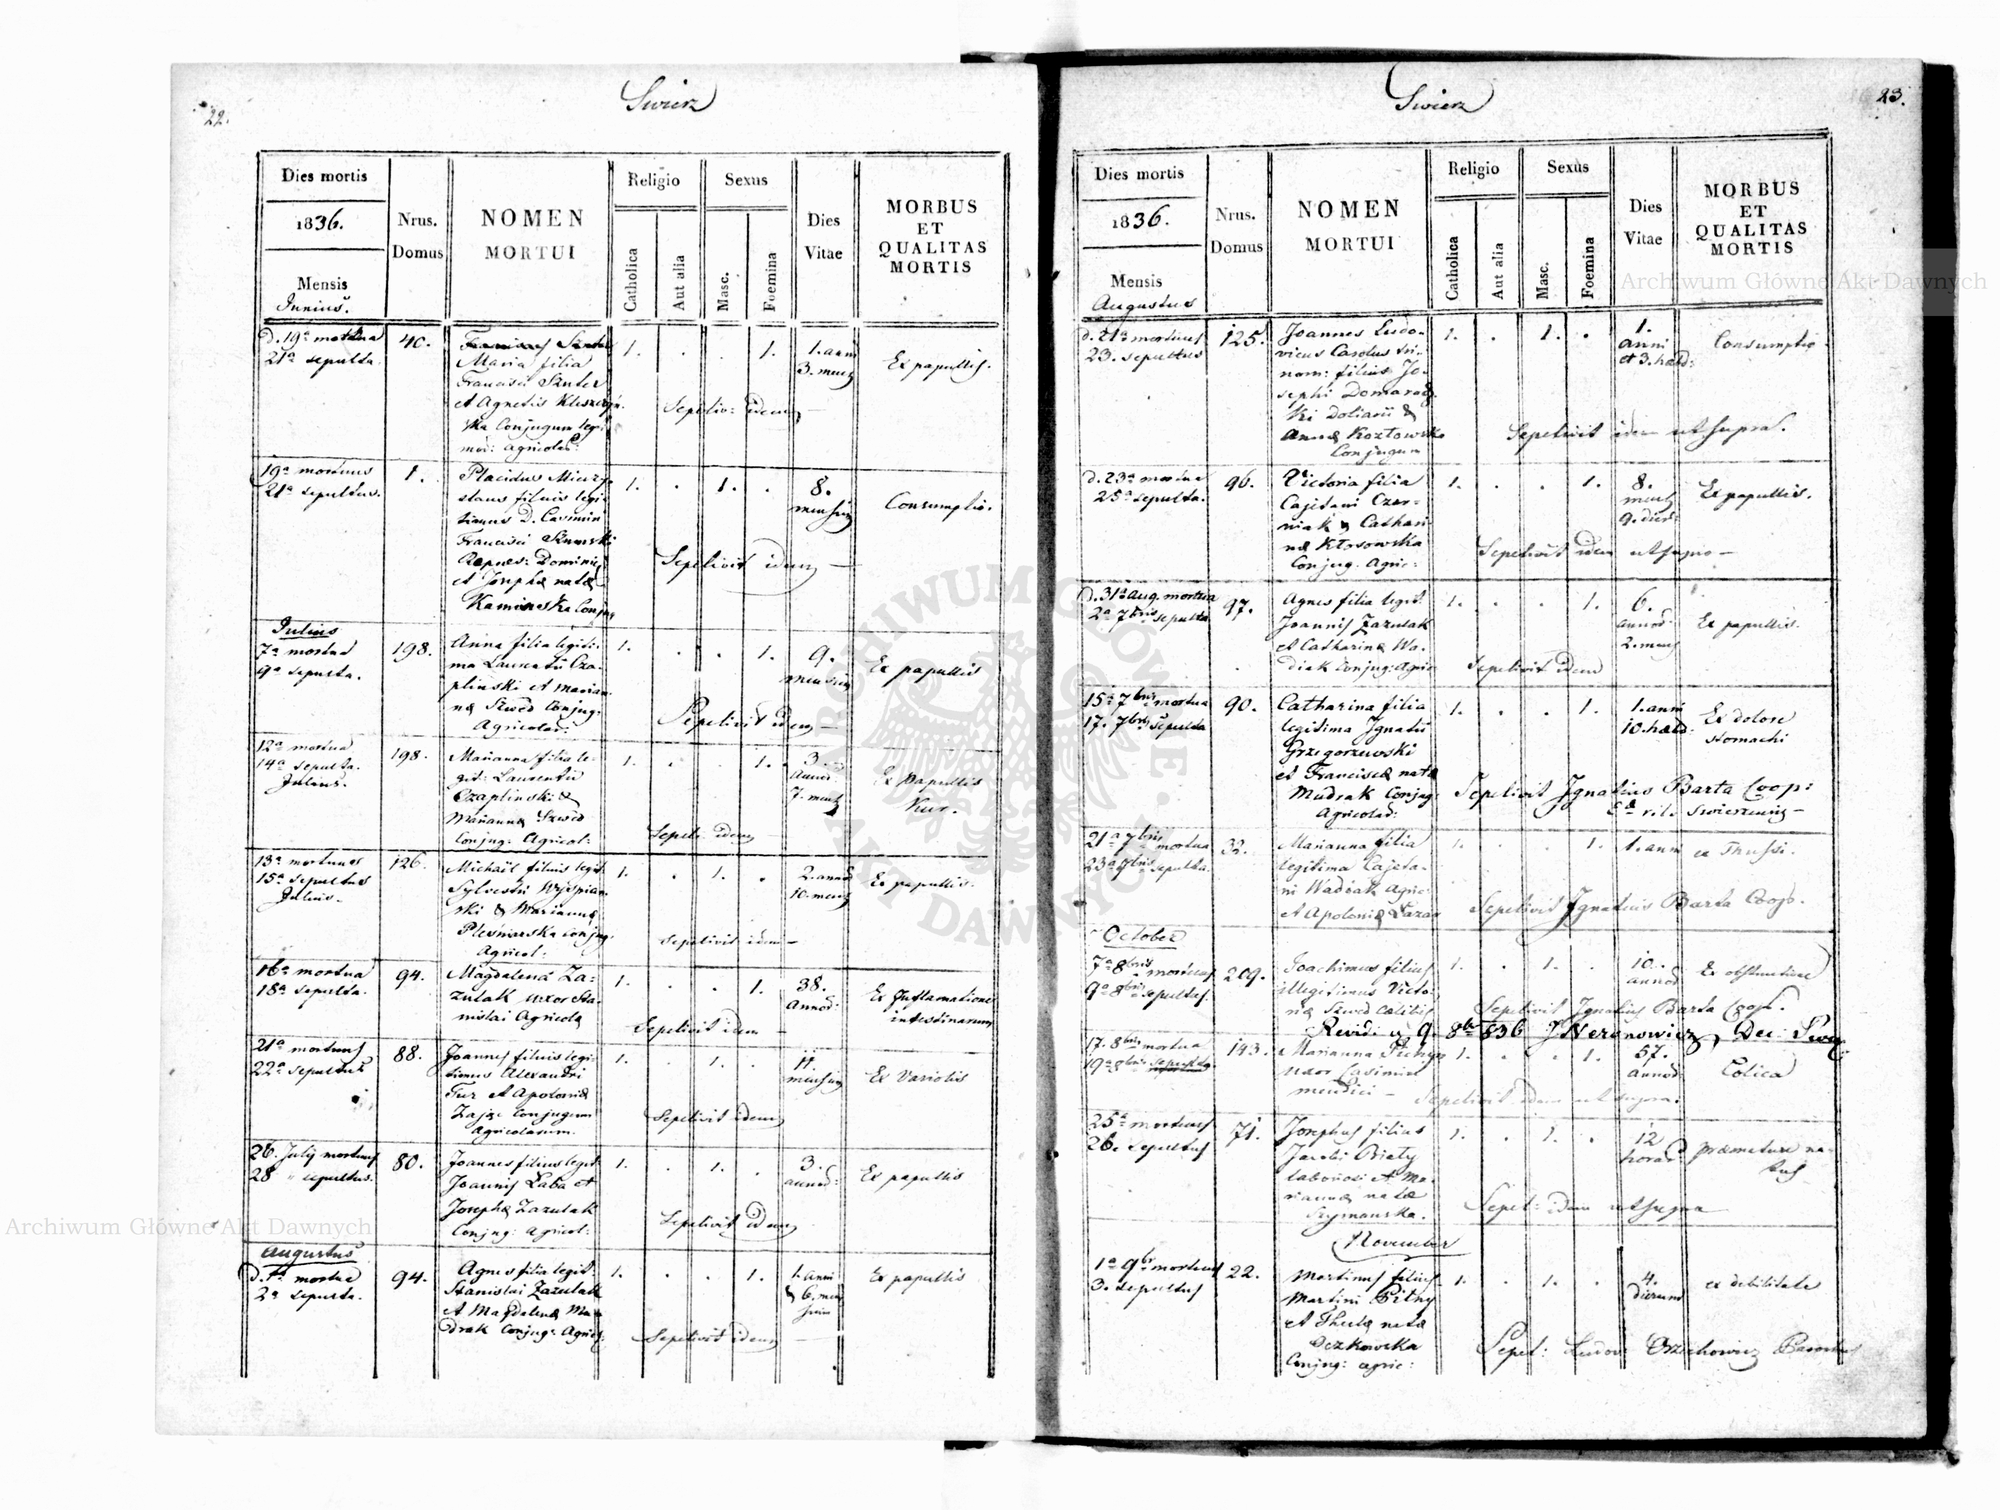 22.
Swirz
Dies mortis
1836.
Mensis
Junius.
Nrus.
Domus
NOMEN
MORTUI
Religio
Catholica
Aut alia
Sexus
Masc.
Foemina
Dies
Vitae
MORBUS
ET
QUALITAS
MORTIS
d. 19a mortua
21a sepulta.
40.
Maria filia
Francisci Szuster
et Agnetis
Conjugum legi
1. . . 1.
1. anni
3. mens
Ex papullis.
Sepeliv: idem
19a mortuus
21a sepultus.
1.
Placidus
filius legi
timus D. Casimiri
Francisci
et Josephæ natæ
Kaminska Conjug
1. . 1. .
8.
mensium
Consumptio.
Sepelivit idem
Julius
7a mortua
9a sepulta.
198.
Anna filia legiti-
ma Laurentii Cza-
plinski et Marian-
næ Szwed Conjug:
Agricolar:
1. . . 1.
9.
mensium
Ex papullis
Sepelivit idem
12a mortua
14a sepulta.
Julius.
198.
Marianna filia le-
git: Laurentii
Czaplinski &
Mariannæ Szwed
Conjug: Agricol:
1. . . 1.
3.
Annor:
7. mens
Ex Papullis
Kur.
Sepel: idem
13a mortuus
15a sepultus
Julius.
126.
Michaël filius legit
Sylvestri Wyspian-
ski & Mariannæ
Conjug:
Agricol:
1. . 1. .
2. annor
10. mens
Ex papullis.
Sepelivit idem
16a mortua
18a sepulta.
94.
Magdalena Za-
zulak uxor Sta-
nislai Agricolæ
1. . . 1.
38.
Annor:
Ex Inflamatione
intestinarum
Sepelivit idem
21a mortuus
22a sepultus
88.
Joannes filius legi-
timus Alexandri
Fur et Apoloniæ
Zając Conjugum
Agricolarum.
1. . 1. .
11.
mensium
Ex Variolis
Sepelivit idem
26. Julij mortuus
28 " sepultus.
80.
Joannes filius legit.
Joannis Łaba et
Josephæ Zazulak
Conjug: Agricol:
1. . 1. .
3.
annor:
Ex papullis
Sepelivit idem
Augustus
d. 1a mortua
2a sepulta.
94.
Agnes filia legit.
Stanislai Zazulak
et Magdalenæ Mu-
drak Conjug: Agric:
1. . . 1.
1. anni
& 6. men
sium
Ex papullis
Sepelivit idem
23.
Swirz
Dies mortis
1836.
Mensis
Augustus
Nrus.
Domus
NOMEN
MORTUI
Religio
Catholica
Aut alia
Sexus
Masc.
Foemina
Dies
Vitae
MORBUS
ET
QUALITAS
MORTIS
d. 21a mortuus
23. sepultus
125.
Joannes Ludo-
vicus Carolus tri-
nom: filius Jo-
sephi Domaradz
ki Doliarii &
Annæ Kozłowska
Conjugum
1. . 1. .
1.
anni
et 3. hebd:
Consumptio.
Sepelivit idem ut supra.
d. 23a mortua
25a sepulta.
96.
Victoria filia
Cajetani Czer-
niak & Cathari
næ Kłosowska
Conjug. Agric:
1. . . 1.
8.
mens
9. dier:
Ex papullis.
Sepelivit idem ut supra
d. 31a Aug. mortua
2a 7bris sepulta
97.
Agnes filia legit.
Joannis Zazulak
et Catharinæ Wa-
diak Conjug: Agric
1. . . 1.
6.
annor:
2. mens
Ex papullis.
Sepelivit idem
15a 7bris mortua
17. 7bris sepulta
90.
Catharina filia
legitima Ignatii
Grzegorzewski
et Franciscæ natæ
Mudrak Conjug:
Agricolar:
1. . . 1.
1. anni
10. hebd:
Ex dolore
stomachi
Sepelivit Ignatius Barta Coop:
21a 7bris mortua
23a 7bris sepulta.
32.
Marianna filia
legitima Cajeta-
ni Wadiak Agric
et Apoloniæ Łazar
1. . . 1.
1. anni
ex Thussi.
Sepelivit Ignatius Barta Coop.
October
7a 8bris mortuus
9a 8bris sepultus.
209.
Joachimus filius
illegitimus Victo-
riæ Szwed Cælibis
1. . 1. .
10.
annor
Ex obstructione
Sepelivit Ignatius Barta Coop.
Revidi 9. 8br 836 J Neronowicz Dec: Swirz
17. 8bris mortua
19a 8bris sepulta
143.
Marianna
uxor Casimiri
mendici
1. . . 1.
57.
annor
Colica
Sepelivit idem ut supra.
25a mortuus
26. sepultus
71.
Josephus filius
Jacobi Biały
laboriosi et Ma-
riannæ natæ
Szymanska.
1. . 1. .
12
horar:
præmature na-
tus
Sepel: idem ut supra
November
1a 9br mortuus
3. sepultus
22.
Martinus filius
Martini Bitny
et Theclæ natæ
Oczkowska
Conjug: agric:
1. . 1. .
4.
dierum
ex debilitate
Sepel: Ludov: Orzechowicz Parochus
Archiwum Główne Akt Dawnych
Archiwum Główne Akt Dawnych
ARCHIWUM GŁÓWNE
AKT DAWNYCH